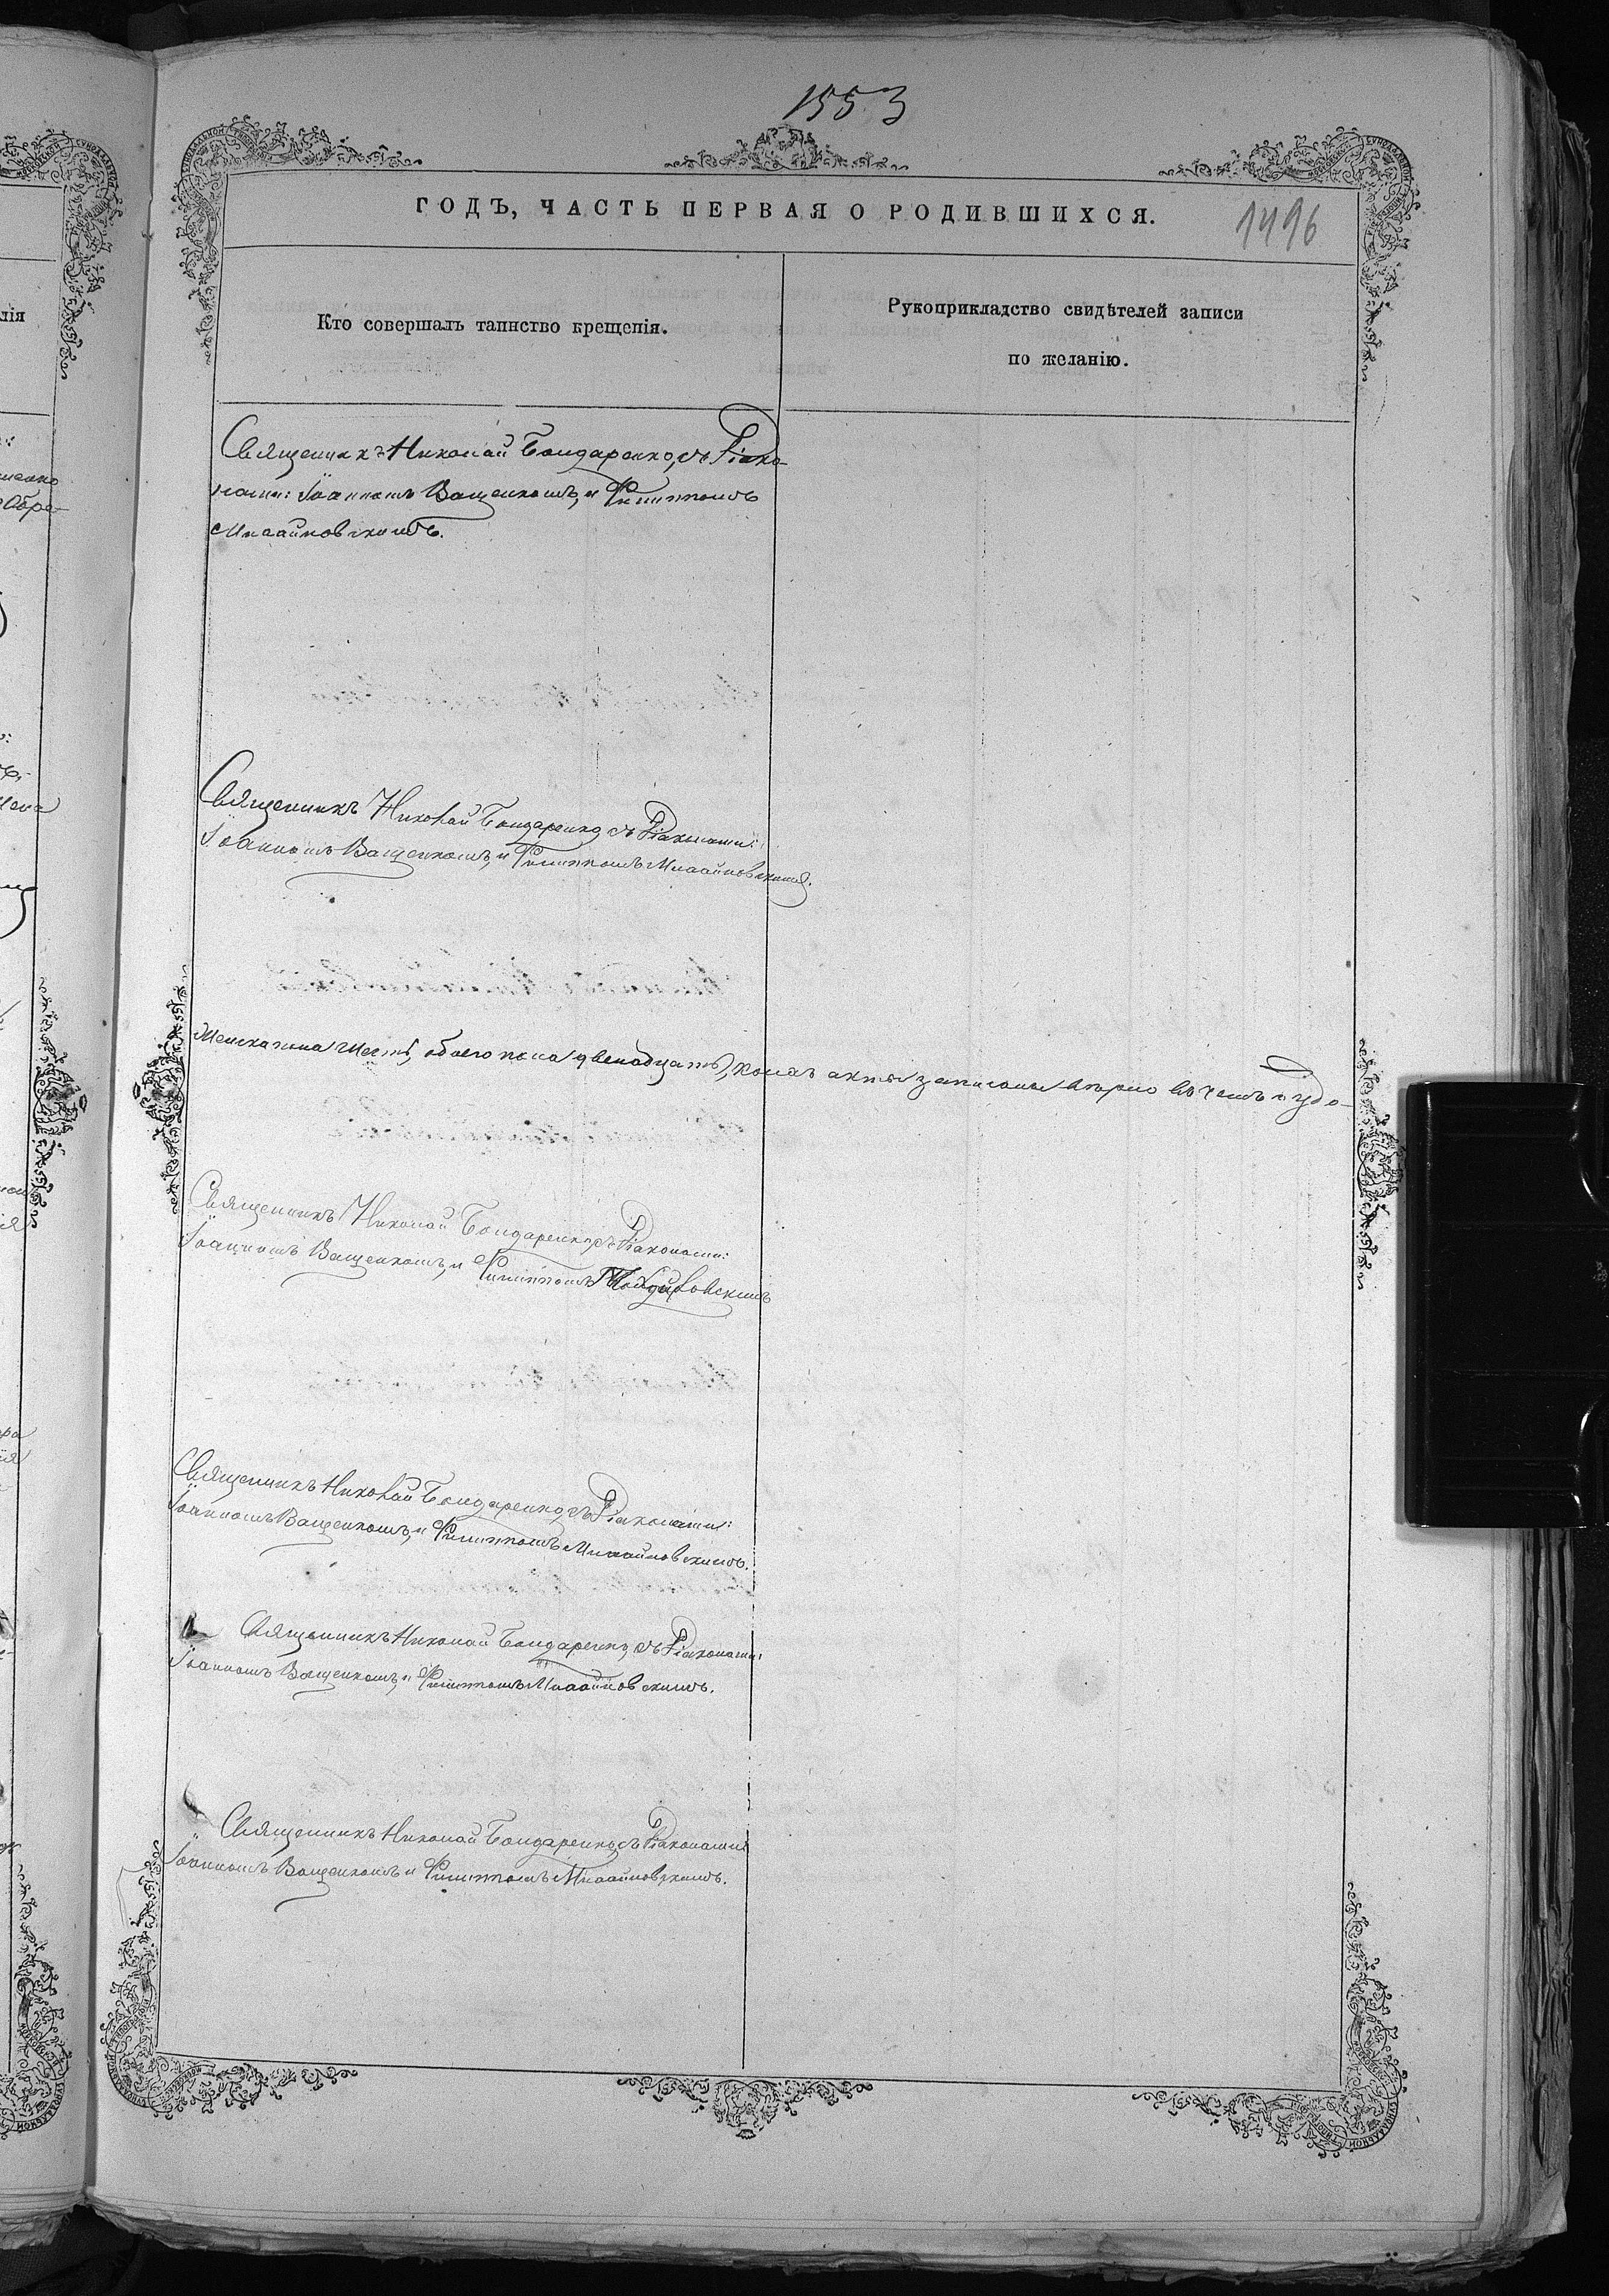 1553
ГОДЪ, ЧАСТЬ ПЕРВАЯ О РОДИВШИХСЯ.
1496
Кто совершалъ таинство крещенія.
Рукоприкладство свидѣтелей записи
по желанію.
Священникъ Николай Бондаренко, съ Діако-
нами: Іоанномъ Ващенкомъ, и Филиппомъ
Священникъ Николай Бондаренко съ Діаконами:
Іоанномъ Ващенкомъ, и Филиппомъ
Женскаго пола шесть, обоего пола двенадцать, коихъ акты записаны вѣрно въ чемъ и удо-
Священникъ Николай Бондаренко съ Діаконами:
Іоанномъ Ващенкомъ, и Филиппомъ
Священникъ Николай Бондаренко, съ Діаконами:
Іоанномъ Ващенкомъ, и Филиппомъ
Священникъ Николай Бондаренко, съ Діаконами:
Іоанномъ Ващенкомъ, и Филиппомъ
Священникъ Николай Бондаренко съ Діаконами
Іоанномъ Ващенкомъ и Филиппомъ